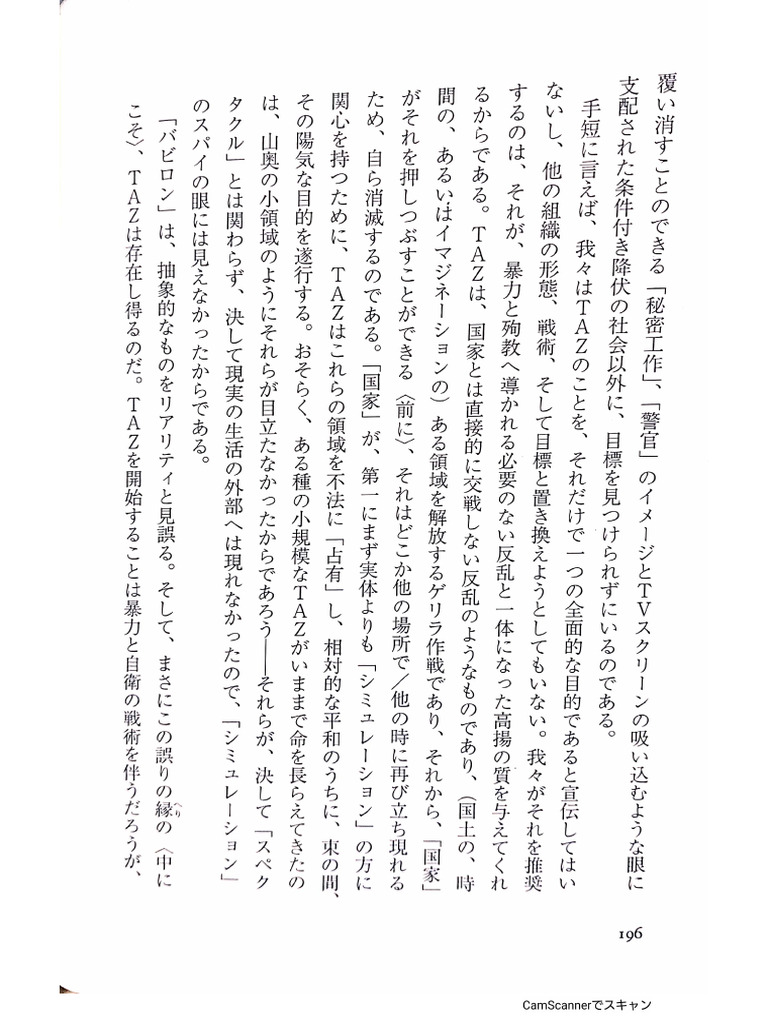 覆い消すことのできる「秘密工作」、「警官」のイメージとTVスクリーンの吸い込むような眼に
支配された条件付き降伏の社会以外に、目標を見つけられずにいるのである。
手短に言えば、我々はTAZのことを、それだけで一つの全面的な目的であると宣伝してはい
ないし、他の組織の形態、戦術、そして目標と置き換えようとしてもいない。我々がそれを推奨
するのは、それが、暴力と殉教へ導かれる必要のない反乱と一体になった高揚の質を与えてくれ
るからである。TAZは、国家とは直接的に交戦しない反乱のようなものであり、(国土の、時
間の、あるいはイマジネーションの)ある領域を解放するゲリラ作戦であり、それから、「国家」
がそれを押しつぶすことができる〈前に〉、それはどこか他の場所で/他の時に再び立ち現れる
ため、自ら消滅するのである。「国家」が、第一にまず実体よりも「シミュレーション」の方に
関心を持つために、TAZはこれらの領域を不法に「占有」し、相対的な平和のうちに、束の間、
その陽気な目的を遂行する。おそらく、ある種の小規模なTAZがいままで命を長らえてきたの
は、山奥の小領域のようにそれらが目立たなかったからであろう——それらが、決して「スペク
タクル」とは関わらず、決して現実の生活の外部へは現れなかったので、「シミュレーション」
のスパイの眼には見えなかったからである。
「バビロン」は、抽象的なものをリアリティと見誤る。そして、まさにこの誤りの縁の〈中に
へり
こそ〉、TAZは存在し得るのだ。TAZを開始することは暴力と自衛の戦術を伴うだろうが、
196
CamScannerでスキャン